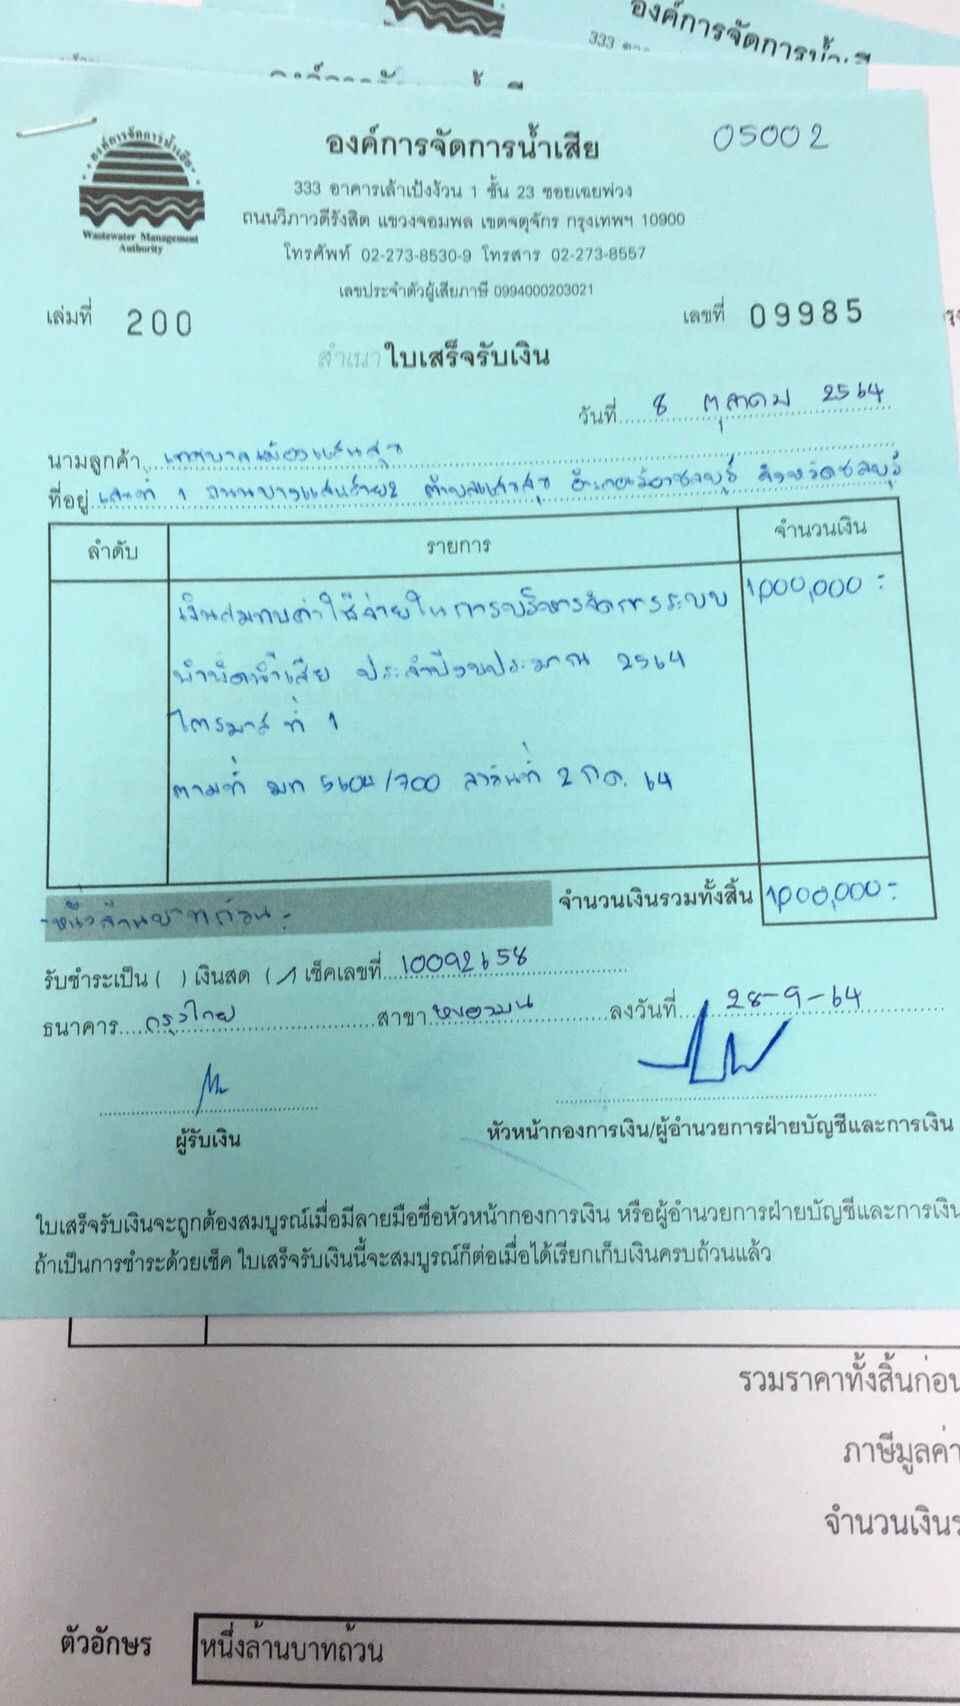 องค์การจัดการน้ำเสีย
333
องค์การจัดการน้ำเสีย
Wastewater Management
Authority
องค์การจัดการน้ำเสีย
05002
333 อาคารเล้าเป้งง้วน 1 ชั้น 23 ซอยเฉยพ่วง
ถนนวิภาวดีรังสิต แขวงจอมพล เขตจตุจักร กรุงเทพฯ 10900
โทรศัพท์ 02-273-8530-9 โทรสาร 02-273-8557
เลขประจำตัวผู้เสียภาษี 0994000203021
เล่มที่ 200
เลขที่ 09985
สำเนาใบเสร็จรับเงิน
วันที่ 8 ตุลาคม 2564
นามลูกค้า เทศบาลเมืองแสนสุข
ที่อยู่ เลขที่ 1 ถนนบางแสนสาย2 ตำบลแสนสุข อำเภอเมืองชลบุรี จังหวัดชลบุรี
ลำดับ รายการ จำนวนเงิน
เงินสมทบค่าใช้จ่ายในการบริหารจัดการระบบ 1,000,000.-
บำบัดน้ำเสีย ประจำปีงบประมาณ 2564
ไตรมาส ที่ 1
ตามที่ มท 5604/700 ลาวันที่ 2 ก.ค. 64
-หนึ่งล้านบาทถ้วน- จำนวนเงินรวมทั้งสิ้น 1,000,000.-
รับชำระเป็น ( ) เงินสด (/) เช็คเลขที่ 10092658
ธนาคาร กรุงไทย สาขา หนองมน ลงวันที่ 28-9-64
ผู้รับเงิน
หัวหน้ากองการเงิน/ผู้อำนวยการฝ่ายบัญชีและการเงิน
ใบเสร็จรับเงินจะถูกต้องสมบูรณ์เมื่อมีลายมือชื่อหัวหน้ากองการเงิน หรือผู้อำนวยการฝ่ายบัญชีและการเงิน
ถ้าเป็นการชำระด้วยเช็ค ใบเสร็จรับเงินนี้จะสมบูรณ์ก็ต่อเมื่อได้เรียกเก็บเงินครบถ้วนแล้ว
รวมราคาทั้งสิ้นก่อน
ภาษีมูลค่า
จำนวนเงินร
ตัวอักษร หนึ่งล้านบาทถ้วน